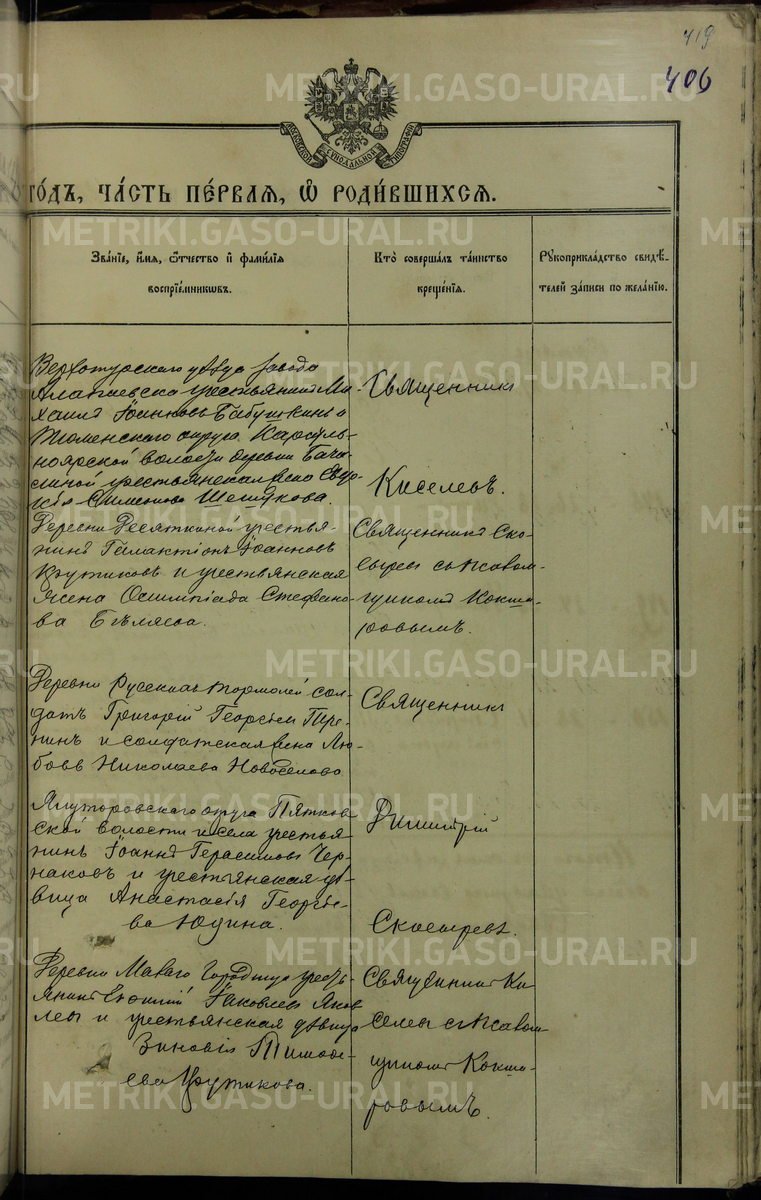 419
406
МОСКОВСКОЙ СѴНОДАЛЬНОЙ ТИПОГРАФІИ
ГО́ДЪ, ЧА́СТЬ ПЕ́РВАѦ, Ѡ҆ РОДИ́ВШИХСѦ.
Зва́нїе, и҆́мѧ, ѻ҆́тчество и҆ фами́лїѧ
воспрїе́мникѡвъ.
Кто̀ соверша́лъ та́инство
креще́нїѧ.
Рꙋкоприкла́дство свидѣ́-
телей за́писи по жела́нїю.
Верхотурскаго уѣзда завода
Алапаевска крестьянинъ Ми-
хаилъ Іоанновъ Бабушкинъ и
Тюменскаго округа
волости деревни
крестьянская Евдо-
кія Симеонова
Священникъ
Киселевъ.
Деревни Десяткиной крестья-
нинъ Галактіонъ Іоанновъ
Крутиковъ и крестьянская
жена Олимпіада Стефано-
ва Бѣляева.
Священникъ Ско-
сыревъ съ псалом-
щикомъ Кокша-
ровымъ.
Деревни Русскихъ сол-
датъ Григорій Георгіевъ
и солдатская жена Лю-
бовь Николаева Новоселова
Священникъ
Ялуторовскаго округа Пятков-
ской волости и села крестья-
нинъ Іоаннъ Герасимовъ Чер-
наковъ и крестьянская дѣ-
вица Анастасія Георгіе-
ва Юдина.
Димитрій
Скосыревъ.
Деревни Малаго Городища кресть-
янинъ Евфимій Іаковлевъ Яков-
левъ и крестьянская дѣвица
Зиновія Тимофе-
ева Крутикова.
Священникъ Ки-
селевъ съ псалом-
щикомъ Кокша-
ровымъ.
METRIKI.GASO-URAL.RU